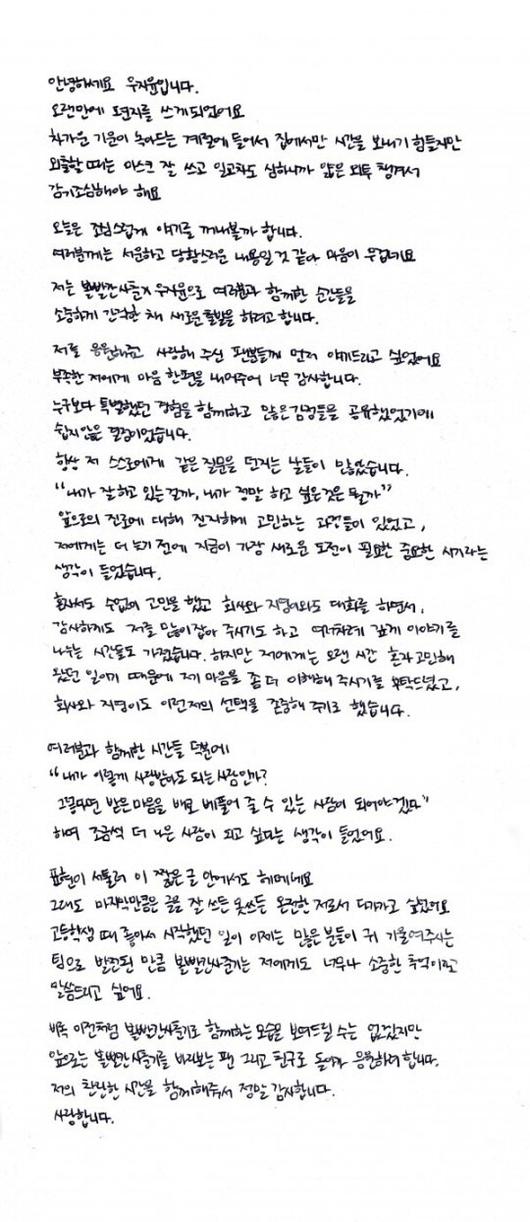 안녕하세요 우지윤입니다.
오랜만에 편지를 쓰게되었어요
차가운 기운이 녹아드는 계절에 들어서 집에서만 시간을 보내기 힘들지만
외출할 때는 마스크 잘 쓰고 일교차도 심하니까 얇은 외투 챙겨서
감기조심해야 해요
오늘은 조심스럽게 얘기를 꺼내볼까 합니다.
여러분께는 서운하고 당황스러운 내용일 것 같아 마음이 무겁네요
저는 볼빨간사춘기 우지윤으로 여러분과 함께한 순간들을
소중하게 간직한 채 새로운 출발을 하려고 합니다.
저를 응원해주고 사랑해 주신 팬분들께 먼저 얘기드리고 싶었어요
부족한 저에게 마음 한편을 내어주어 너무 감사합니다.
누구보다 특별했던 경험을 함께하고 많은 감정들을 공유했었기에
쉽지 않은 결정이었습니다.
항상 저 스스로에게 같은 질문을 던지는 날들이 많았습니다.
"내가 잘 하고 있는 걸까, 내가 정말 하고 싶은 것은 뭘까"
앞으로의 진로에 대해 진지하게 고민하는 과정들이 있었고,
저에게는 더 늦기 전에 지금이 가장 새로운 도전이 필요한 중요한 시기라는
생각이 들었습니다.
혼자서도 수없이 고민을 했고 회사와 지영이와도 대화를 하면서,
감사하게도 저를 많이 잡아 주시기도 하고 여러차례 깊게 이야기를
나누는 시간들도 가졌습니다. 하지만 저에게는 오랜 시간 혼자 고민해
왔던 일이기 때문에 제 마음을 좀 더 이해해 주시기를 부탁드렸고,
회사와 지영이도 이런 저의 선택을 존중해 주기로 했습니다.
여러분과 함께한 시간들 덕분에
"내가 이렇게 사랑받아도 되는 사람인가?
그렇다면 받은 마음을 배로 베풀어 줄 수 있는 사람이 되어야겠다"
하며 조금씩 더 나은 사람이 되고 싶다는 생각이 들었어요.
표현이 서툴러 이 짧은 글 안에서도 헤매네요
그래도 마지막만큼은 글을 잘 쓰든 못쓰든 온전한 저로서 다가가고 싶었어요
고등학생 때 좋아서 시작했던 일이 이제는 많은 분들이 귀 기울여주시는
팀으로 발전된 만큼 볼빨간사춘기는 저에게도 너무나 소중한 추억이라고
말씀드리고 싶어요.
비록 이전처럼 볼빨간사춘기로 함께하는 모습을 보여드릴 수는 없겠지만
앞으로는 볼빨간사춘기를 바라보는 팬 그리고 친구로 돌아가 응원하려 합니다.
저의 찬란한 시간을 함께해줘서 정말 감사합니다.
사랑합니다.